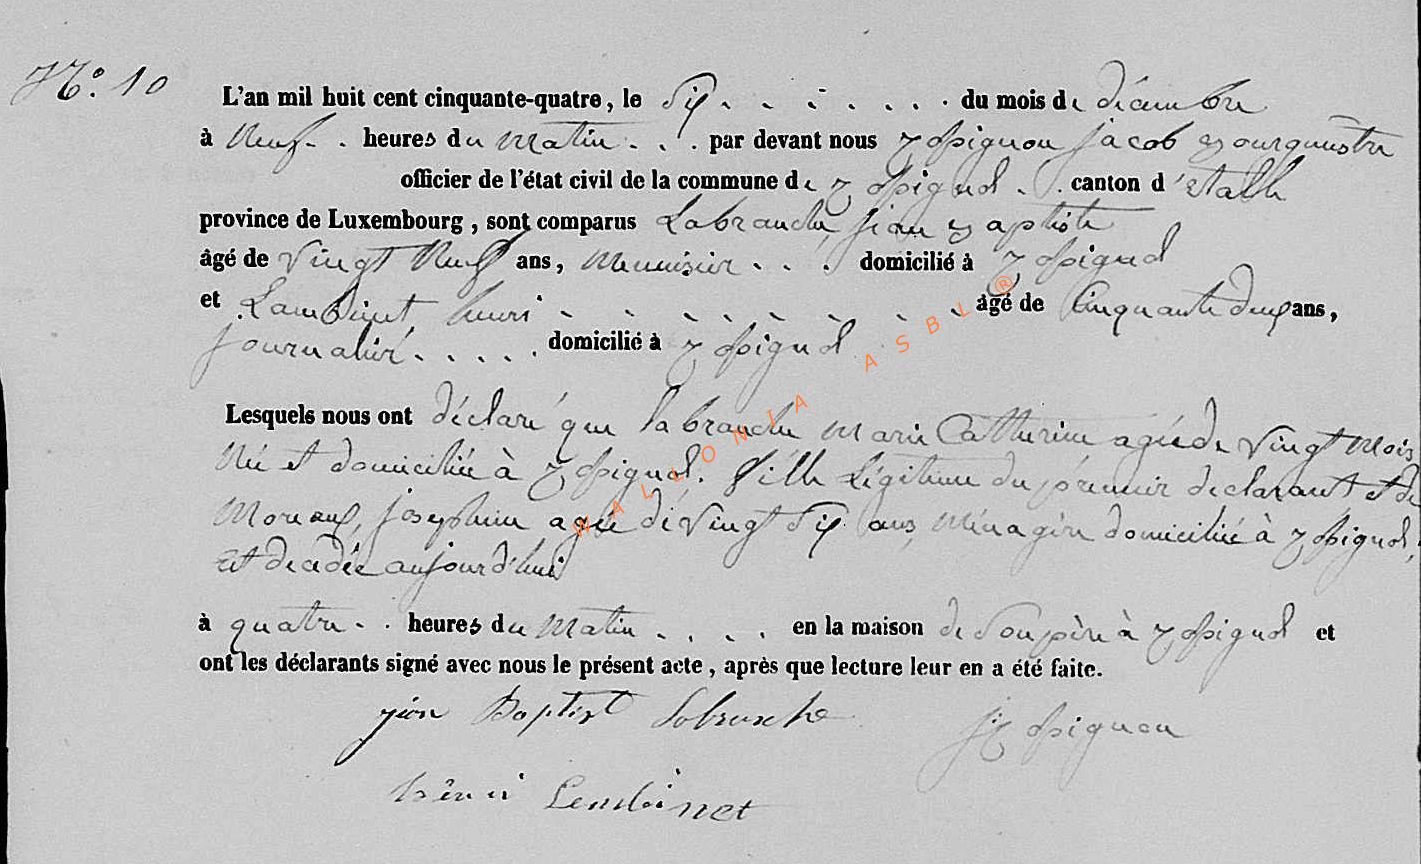 N.° 10
L'an mil huit cent cinquante-quatre, le Six du mois de décembre
à Neuf heures du Matin par devant nous Jacob Bourguestre
officier de l'état civil de la commune de canton d'Etalle
province de Luxembourg, sont comparus Labranche, Jean Baptiste
âgé de Vingt Neuf ans, Menuisier domicilié à
et Lambinet, henri âgé de Cinquante deux ans,
journalier domicilié à
Lesquels nous ont déclaré que labranche Marie Catherine agée de Vingt Mois
Née et domiciliée à fille Légitime du premier declarant et de
Moreaux, Josephine agée de Vingt Six ans, Ménagère domiciliée à
Et decedée aujourd'hui
à quatre heures du Matin en la maison de Son père à et
ont les déclarants signé avec nous le présent acte, après que lecture leur en a été faite.
jean Baptist Labranche
henri Lembinet
WALLONIA ASBL ®